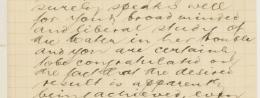 surely speaks well
for your broadminded
and liberal study of
the matter in her trouble
and you are certainly
to be congratulated on
the fact that the desired
result is apparently
being achieved, even